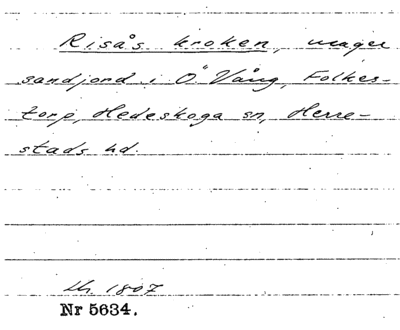 Risås kroken, mager
sandjord i Ö Vång, Folkes-
torp, Hedeskoga sn, Herre-
stads hd.
Lh. 1807
Nr 5634.